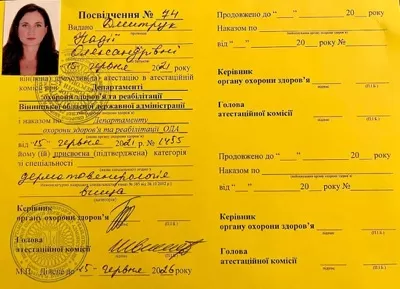 Посвідчення № 74
Видано Дмитрук
Надії
Олександрівні
15 червня 2021
атестацію в атестаційній
комісії при Департаменті
охорони здоров'я та реабілітації
Вінницької обласної державної адміністрації
Наказом по Департаменту
охорони здоров'я та реабілітації ОДА
від "15" червня 2021 р. № 1455
йому (їй) присвоєна (підтверджена) категорія
зі спеціальності
дерматовенерологія
вища
Керівник
органу охорони здоров'я
підпис (П.І.Б.)
Голова
атестаційної комісії
М.П. Дійсне до "15" червня 2026 року
Продовжено до " " 20 року
Наказом по
від " " 20 року №
Керівник
органу охорони здоров'я
підпис (П.І.Б.)
Голова
атестаційної комісії
підпис (П.І.Б.)
Продовжено до " " 20 року
Наказом по
від " " 20 року №
Керівник
органу охорони здоров'я
підпис (П.І.Б.)
Голова
атестаційної комісії
підпис (П.І.Б.)